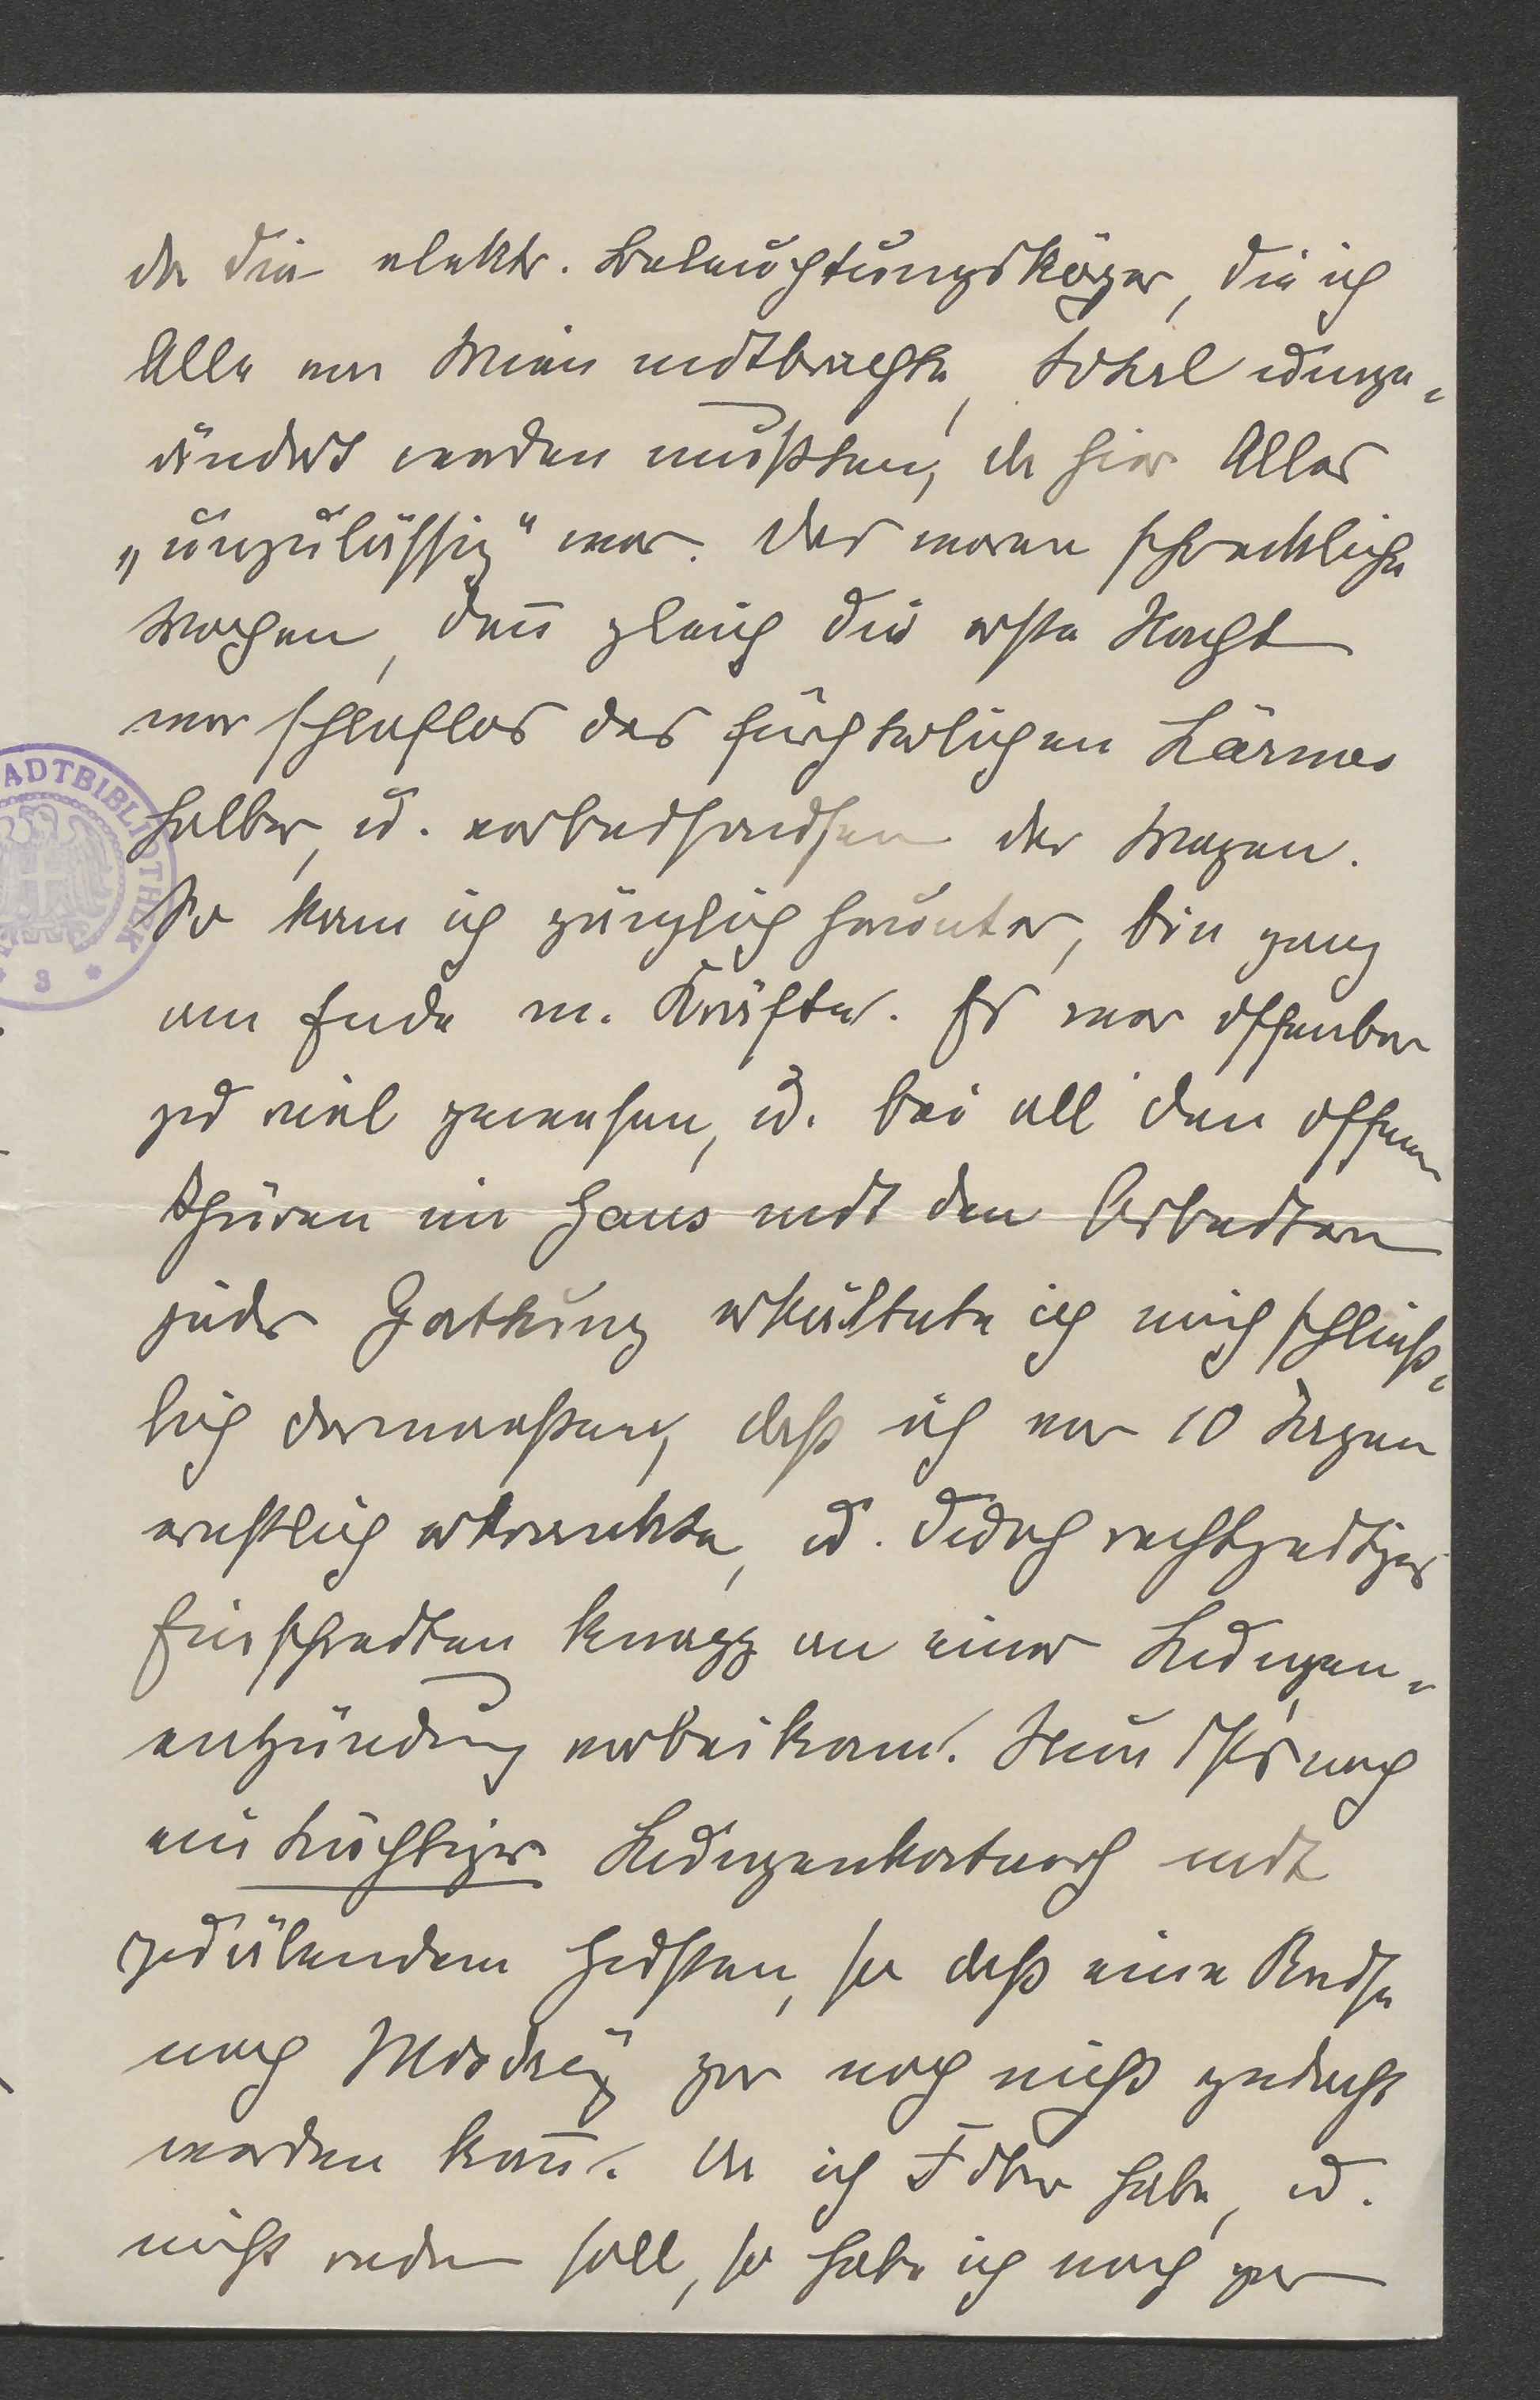 da die elektr. Beleuchtungskörper, die ich
Alle von Wien mitbrachte, total umge-
ändert werden mußten, da hier Alles
„unzulässig“ war. Das waren schreckliche
Wochen, deñ gleich die erste Nacht
war schlaflos des fürchterlichen Lärmes
halber, u. vorbeisausen der Wagen.
So kam ich gänzlich herunter, bin ganz
am Ende m. Kräfte. Es war offenbar
zu viel gewesen, u. bei all den offenen
Thüren im Haus mit den Arbeitern
jeder Gattung erkältete ich mich schließ-
lich dermaßen, daß ich vor 10 Tagen
ernstlich erkrankte, u. durch rechtzeitiges
Einschreiten knapp an einer Lungen-
entzündung vorbeikam. Nun ist's noch
ein tüchtiger Lungenkatarrh mit
quälendem Husten, so daß eine Reise
nach gar noch nicht gedacht
werden kañ. Da ich Fieber habe, u.
nicht reden soll, so habe ich noch gar
STADTBIBLIOTHEK